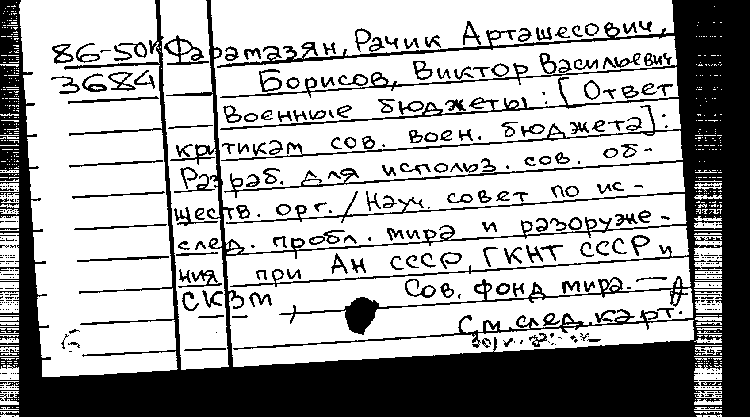 86-50к Фарамазян, Рачик Арташесович,
3684 Борисов, Виктор Васильевич
Военные бюджеты: [Ответ
критикам сов. воен. бюджета]:
Разраб. для использ. сов. об-
ществ. орг. / Науч. совет по ис-
след. пробл. мира и разоруже-
ния при Ан СССР, ГКНТ СССР и
СКЗМ, Сов. фонд мира. —
См. след. карт.
6